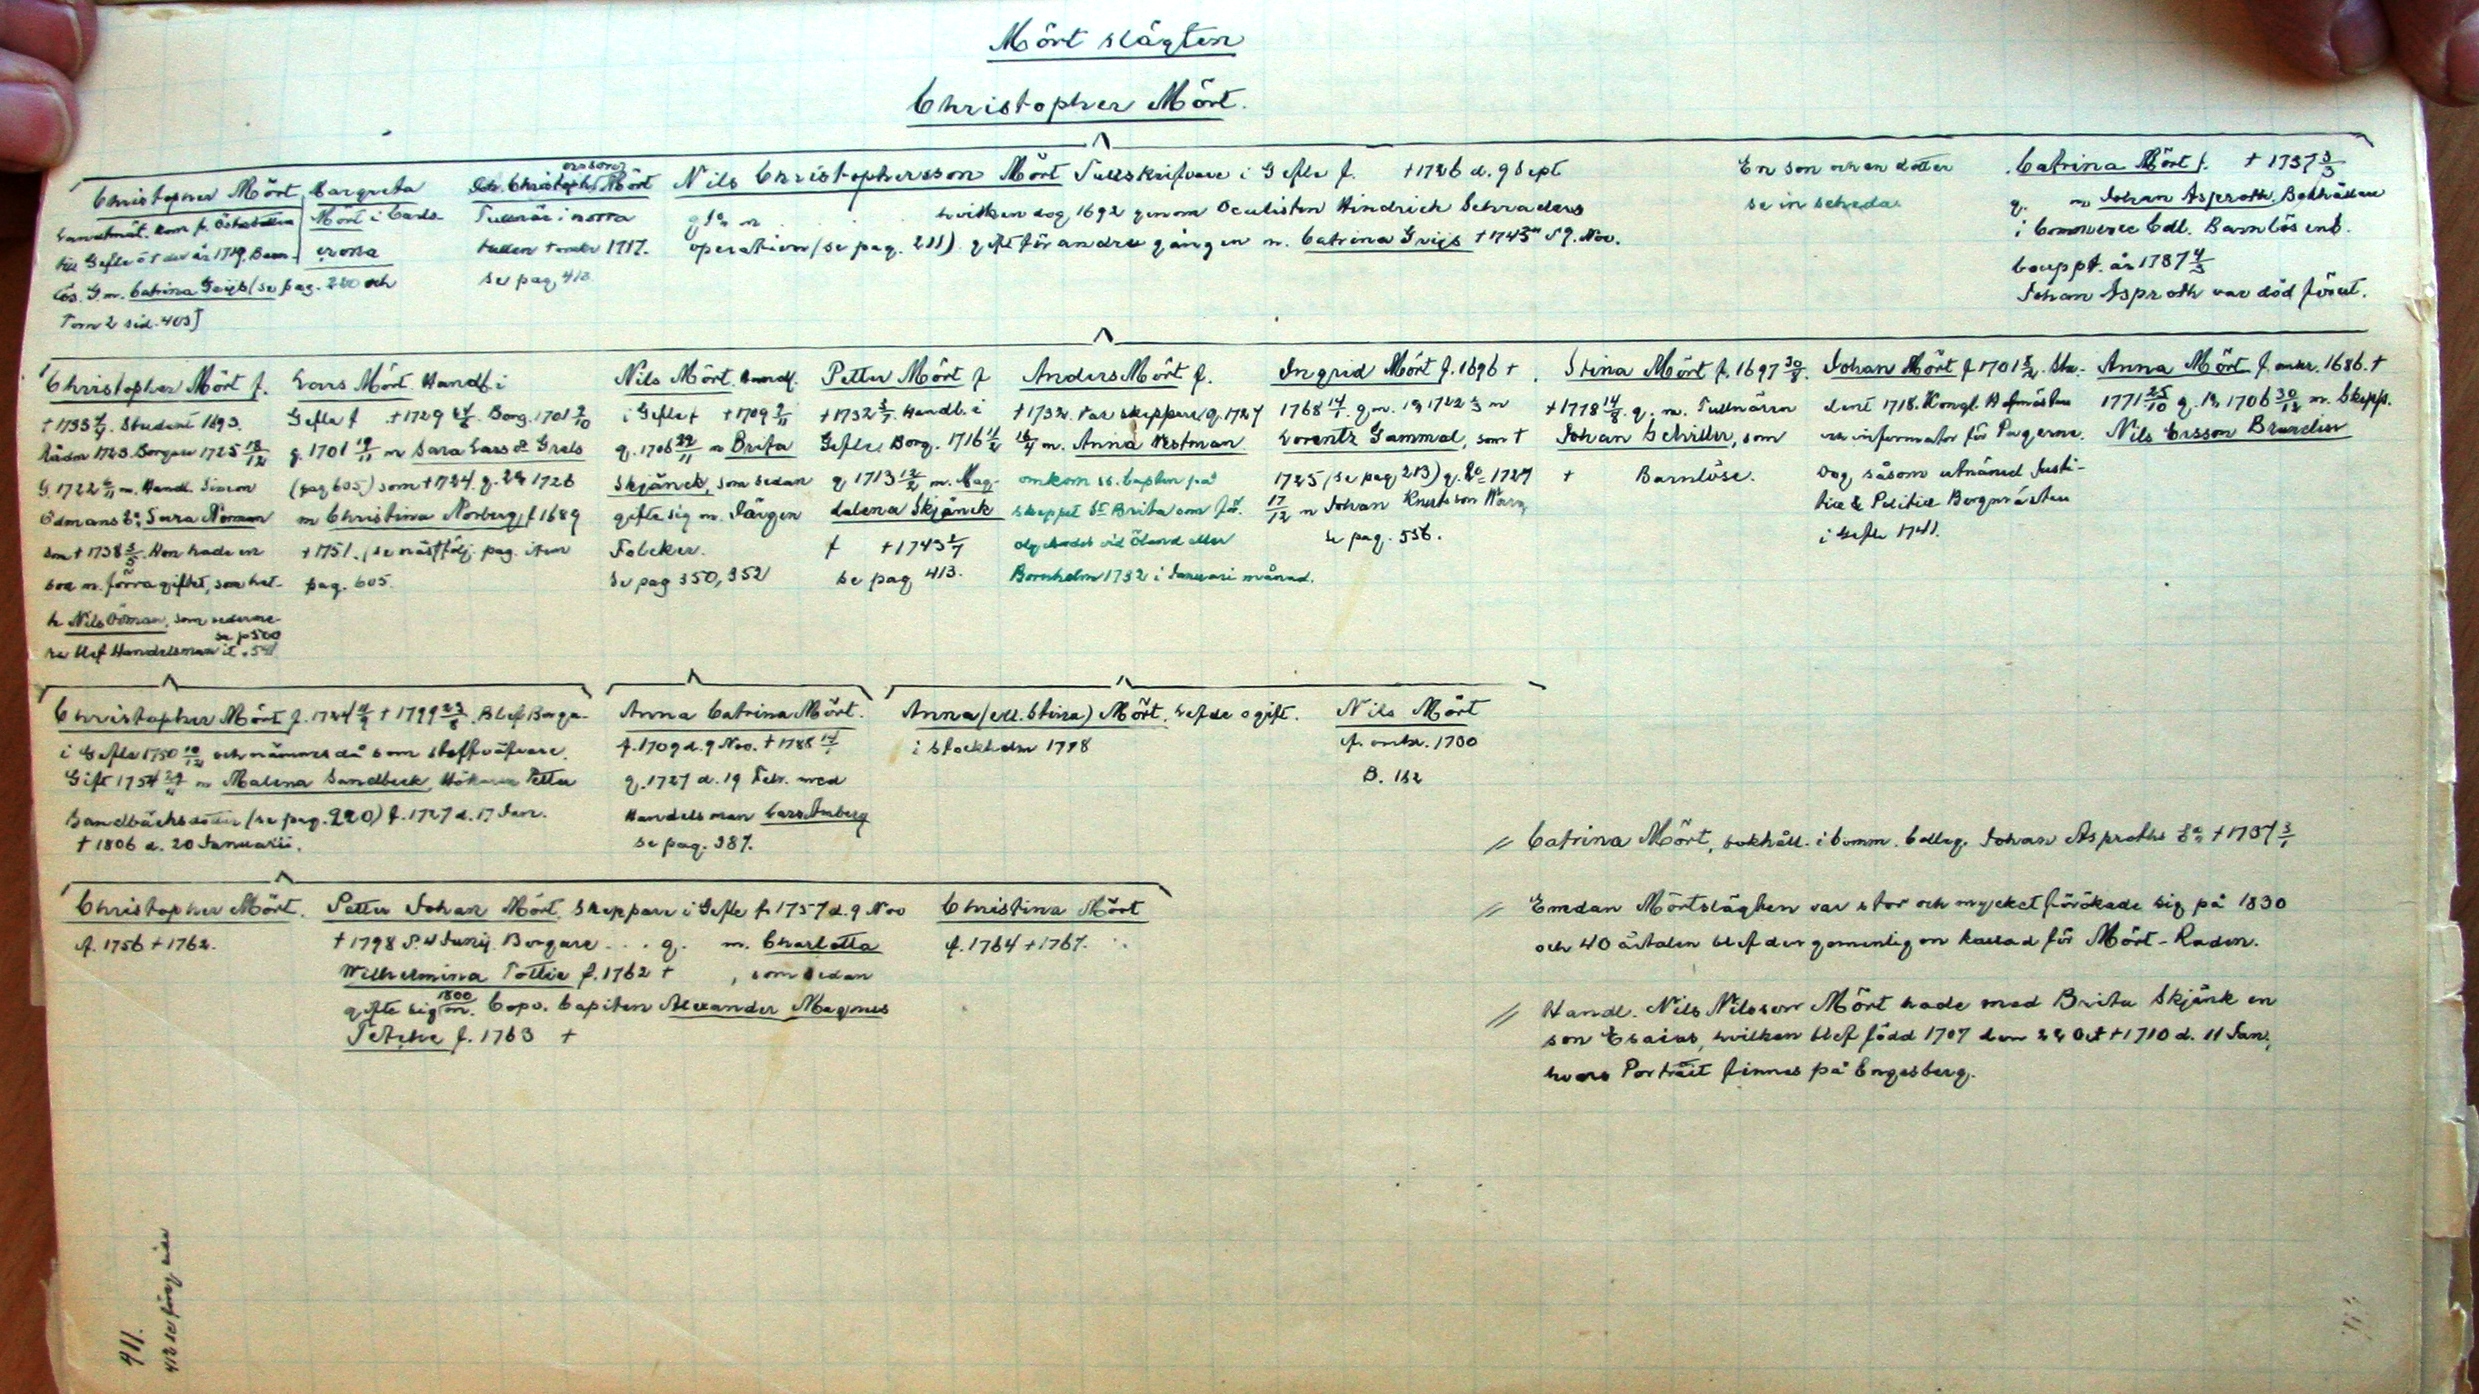 Mört slägten
Christopher Mört.
Christopher Mört
Landtmät. kom fr. Österbotten
till Gefle åt der år 1719. Barn-
lös. G. m. Catrina Grijs (se pag. 220 och
Tom 2 sid. 403)
Margreta
Mört i Carls-
crona
Christophersson Mört
Tullnär i norra
tullen 1717.
se pag. 413
Nils Christophersson Mört Tullskrifvare i Gefle f. +1726 d. 9 Sept
g. 1o m hvilken dog 1692 genom Oculisten Hindrich Schraders
operation (se pag. 211) gift för andra gången m. Catrina Grijs +1743 d 9. Nov.
En son och en dotter
se in scheda
Catrina Mört f. +1737 3/3
g. m Johan Asproth, Bokhållare
i Commerce Coll. Barnlös enl.
bouppt. år 1737 4/3
Johan Asproth var död förut.
Christopher Mört f.
+1733 Student 1693.
Rådm 1723. Borgare 1725 18/12
G. 1722 m. Handl. Simon
Ödmans Ea Sara Norman
som +1738 3/5. Hon hade en
son m. förra giftet, som het-
te Nils Ödman, som sederme-
se p 500
ra blef Handelsman
Lars Mört Handl i
Gefle f +1729 Borg. 1701 2/10
g. 1701 19/11 m Sara Lars dr Grels
(pag 605) som +1724. g. 2o 1726
m Christina Norberg f 1689
+1751. (se nästfölj. pag. item
pag. 605.
Nils Mört Handl.
i Gefle f +1709 2/11
g. 1706 22/11 m Brita
Skjänck, som sedan
gifte sig m. Jürgen
Folcker.
Se pag 350, 352
Petter Mört f
+1732 Handl. i
Gefle. Borg. 1716 11/2
g. 1713 12/2 m. Mag-
dalena Skjänck
f +1743
se pag 413.
Anders Mört f.
+1732. Var skeppare, g. 1727
m. Anna Westman
omkom ss. Capten på
skeppet St Brita som för-
olyckades vid Öland eller
Bornholm 1732 i Januari månad.
Ingrid Mört f. 1696 +
1768 14/1. g. m. 1o 1722 m
Lorentz Gammal, som +
1725 (se pag 213) g. 2o 1727
17/12 m Johan Knutsson
se pag. 556.
Stina Mört f. 1697 30/8.
+1778 14/8. g. m. Tullnären
Johan Schiller, som
+ Barnlöse.
Johan Mört f 1701 8/2. Stu-
dent 1718. Kongl. Hofmästare
och informator för Pagerne.
Dog såsom utnämd Justi-
tiæ & Politiæ Borgmästare
i Gefle 1741.
Anna Mört f. omkr. 1686. +
1771 25/10 g. 1o 1706 30/12 m. Skepp.
Nils Ersson Brandier
Christopher Mört f. 1724 +1799 23/8. Blef Borga-
i Gefle 1750 10/12 och nämnes då som stoffväfvare.
Gift 1754 m Malena Sandbeck, Hökaren Petter
Sandbäcks dotter (se pag. 220) f. 1727 d. 17 Jan.
+ 1806 d. 20 Januarii.
Anna Catrina Mört.
f. 1709 d. 9 Nov. +1788
g. 1727 d. 19 Febr. med
Handelsman Lars Amberg
se pag. 387.
Anna (ell. Stina) Mört. lefde ogift.
i Stockholm 1798
Nils Mört
f. omkr. 1730
B. 182
Christopher Mört.
f. 1756 +1762.
Petter Johan Mört, Skeppare i Gefle f. 1757 d. 9 Nov
+1798 d. 4 Junij. Borgare . . . g. m. Charlotta
Wilhelmina Tottie f. 1762 + , som sedan
gifte sig 1800 m. Copv. Capiten Alexander Magnus
Tetche f. 1763 +
Christina Mört
f. 1764 +1767.
// Catrina Mört, bokhåll. i Comm. Colleg. Johan Asproths Ea +1737
// Emedan Mörtslägten var stor och mycket förökade sig på 1830
och 40 åstalen blef den gemenligen kallad för Mört-Raden.
// Handl. Nils Nilsson Mört hade med Brita Skjänk en
son Esaias, hvilken blef född 1707 den 22 Oct +1710 d. 11 Jan.,
hvars Porträit finnes på Engesberg.
411.
412 se föreg. sida